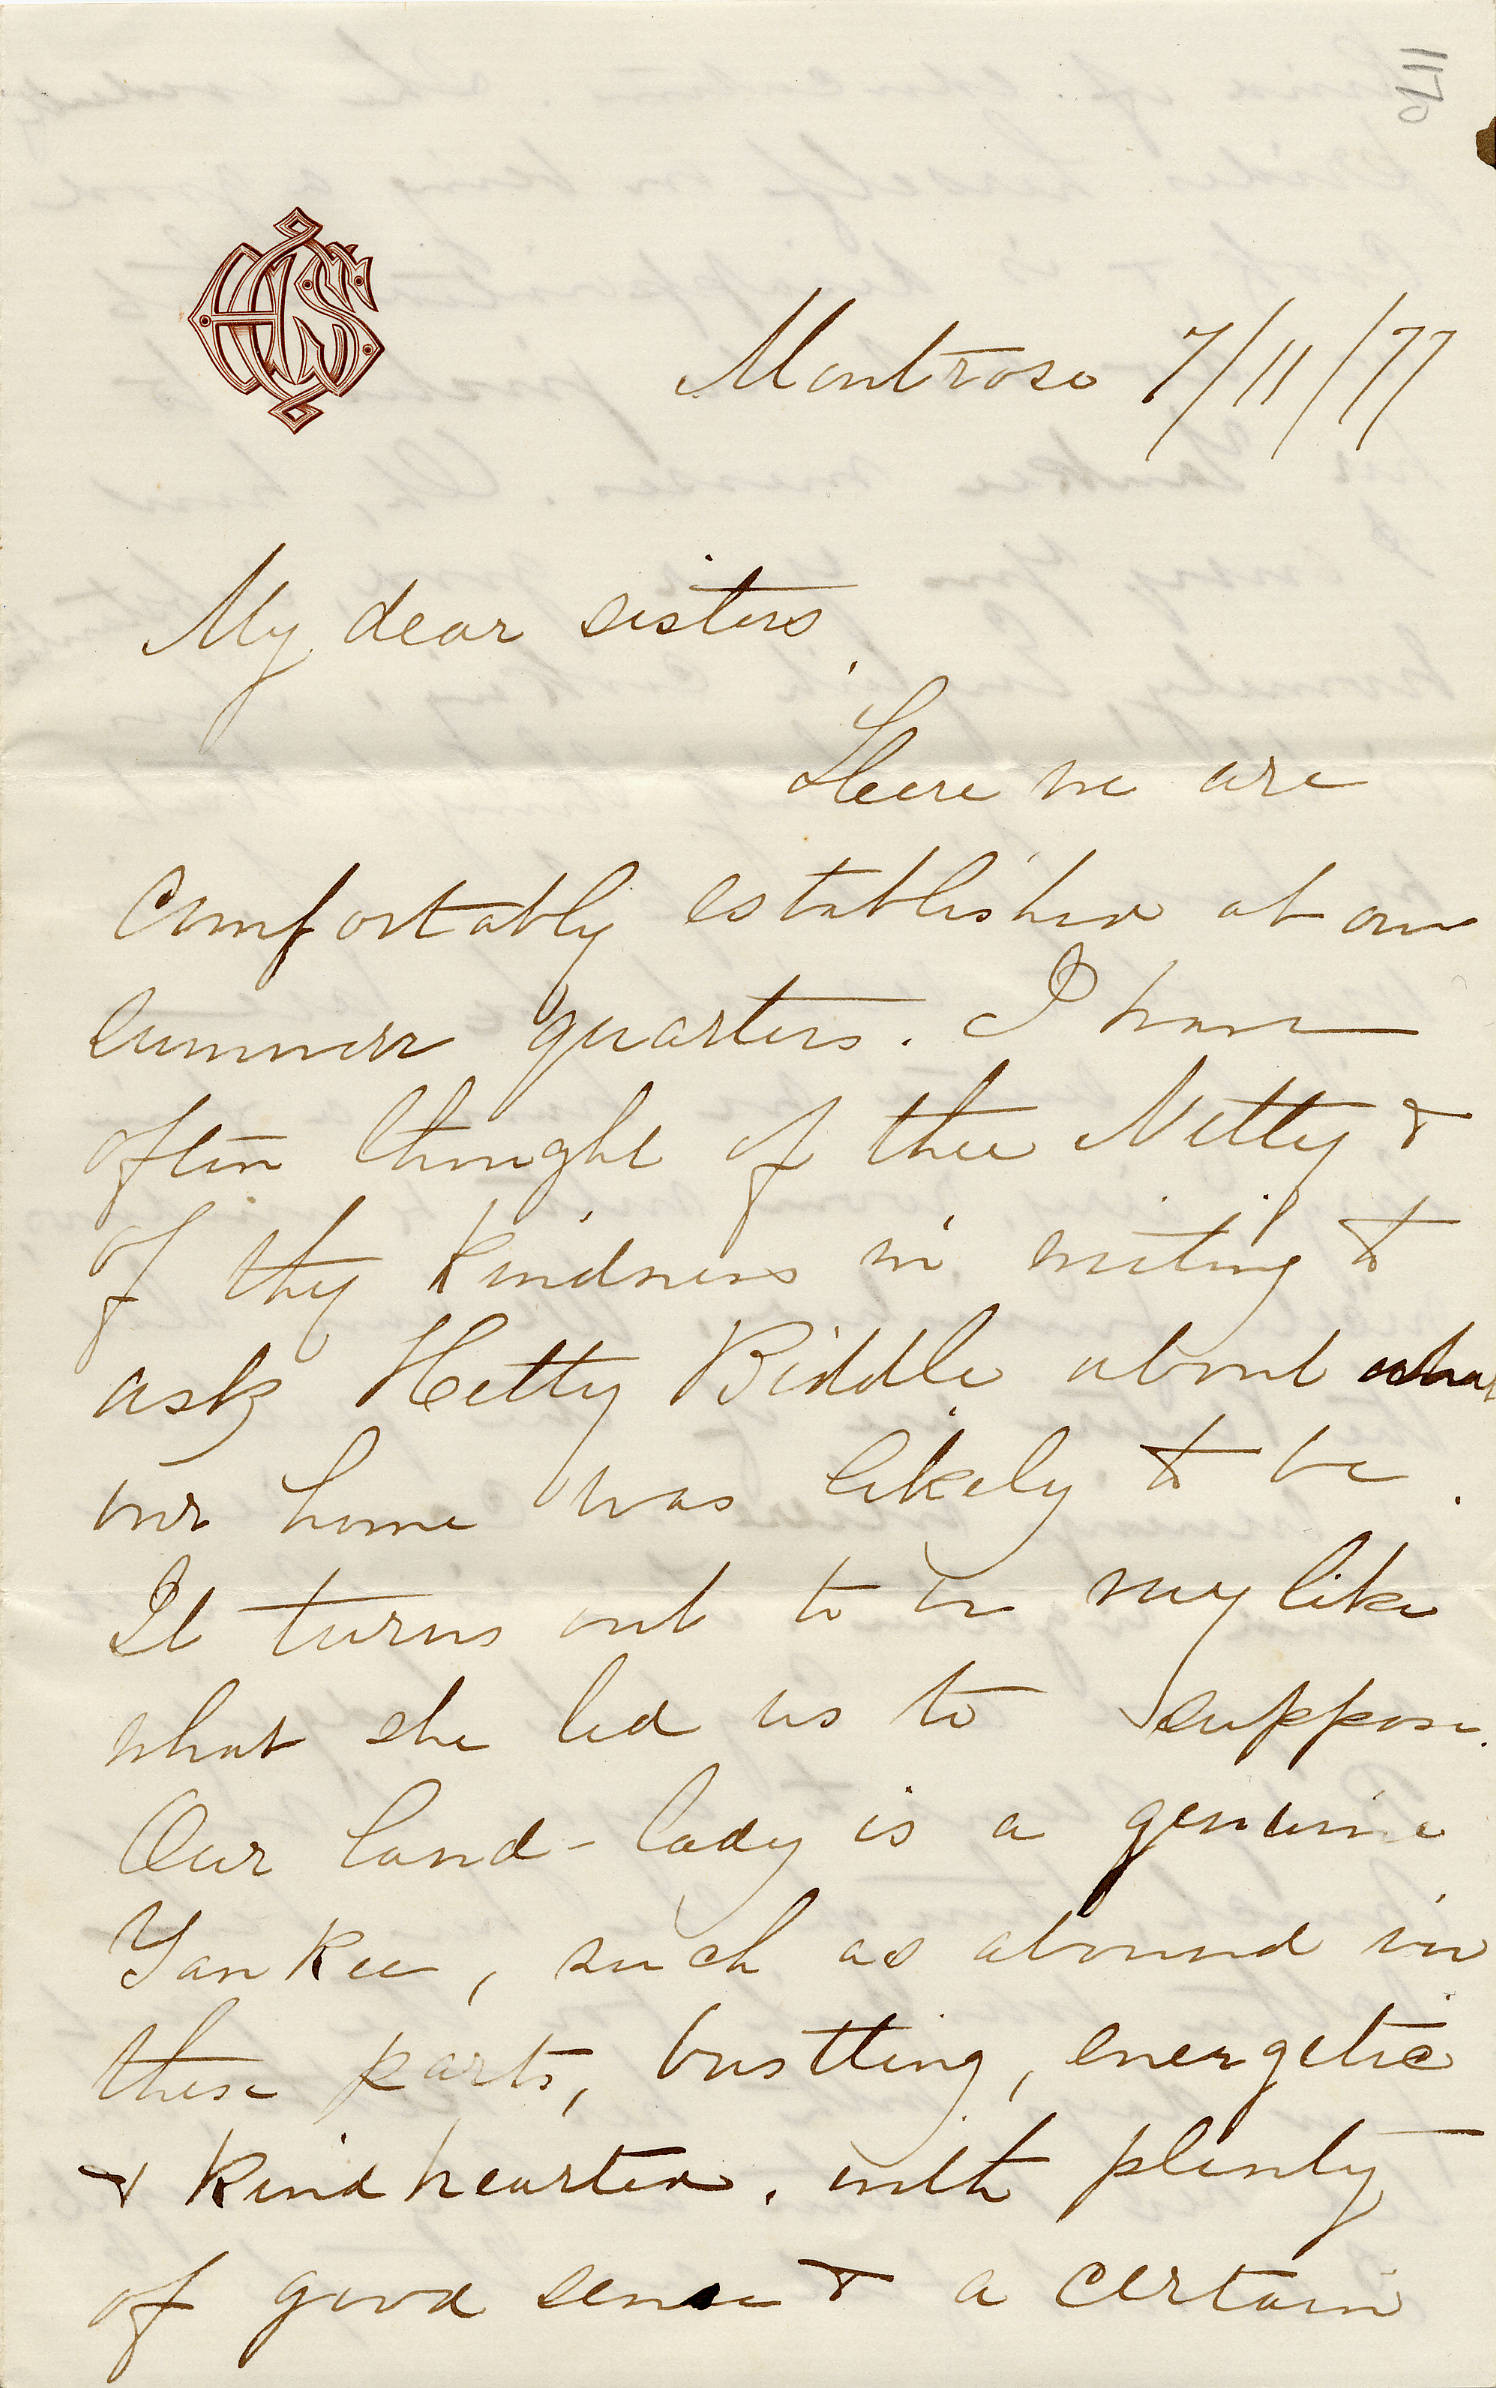 1170
Montrose 7/11/77
My dear sisters,
Here we are
comfortably established at our
summer quarters. I have
often thought of thee Netty &
of thy kindness in writing to
ask Hetty Biddle about what
our home was likely to be.
It turns out to be very like
what she led us to suppose.
Our land-lady is a genuine
Yankee, such as abound in
these parts, bustling, energetic
& kindhearted, with plenty
of good sense & a certain